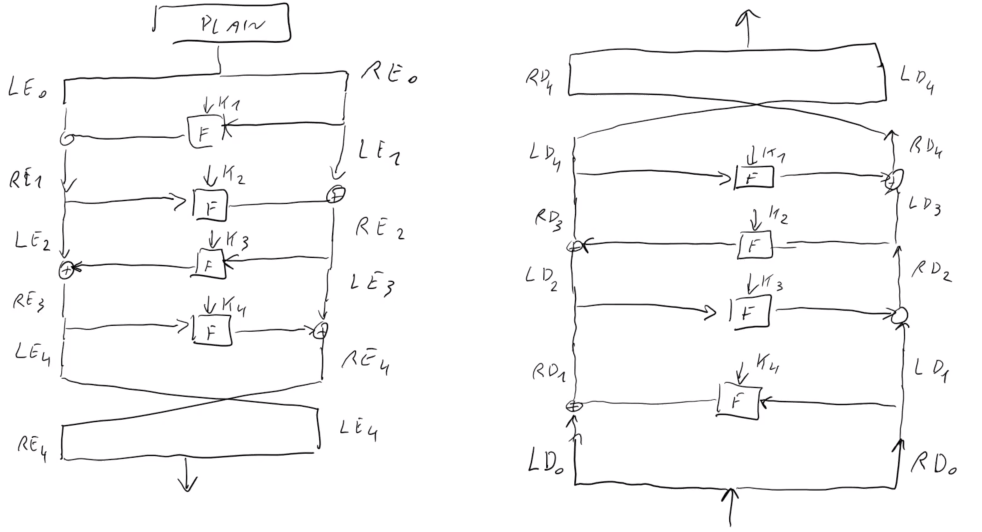 PLAIN
LE0
RE0
K1
F
LE1
RE1
K2
F
LE2
RE2
K3
F
RE3
LE3
K4
F
LE4
RE4
RE4
LE4
RD4
LD4
LD4
K1
RD4
F
LD3
RD3
K2
F
LD2
RD2
K3
F
RD1
K4
LD1
F
LD0
RD0